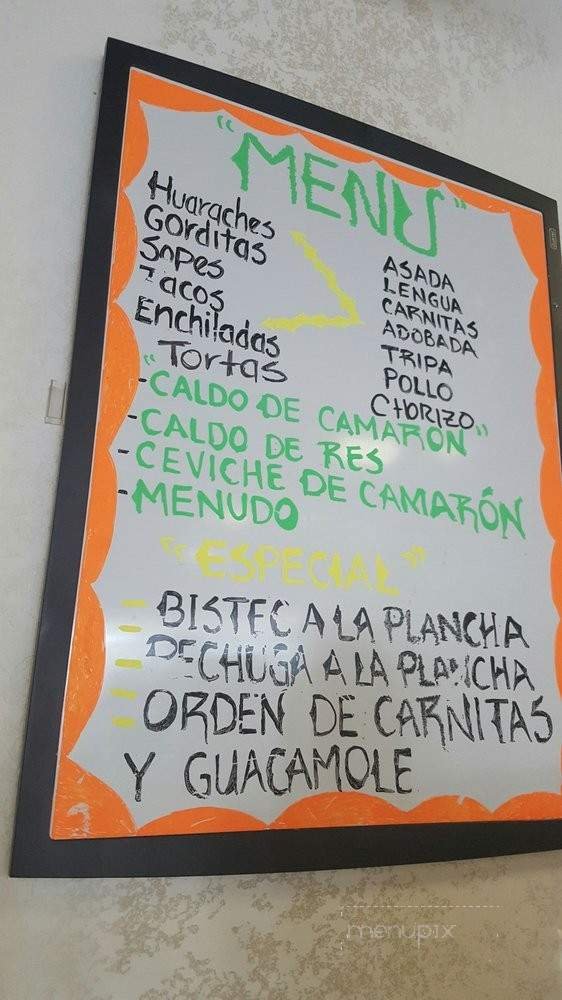 "MENU"
Huaraches
Gorditas
Sopes
Tacos
Enchiladas
Tortas
ASADA
LENGUA
CARNITAS
ADOBADA
TRIPA
POLLO
CHORIZO
"CALDO DE CAMARÓN"
-CALDO DE RES
-CEVICHE DE CAMARÓN
-MENUDO
"ESPECIAL"
- BISTEC A LA PLANCHA
- PECHUGA A LA PLANCHA
- ORDEN DE CARNITAS
Y GUACAMOLE
menupix